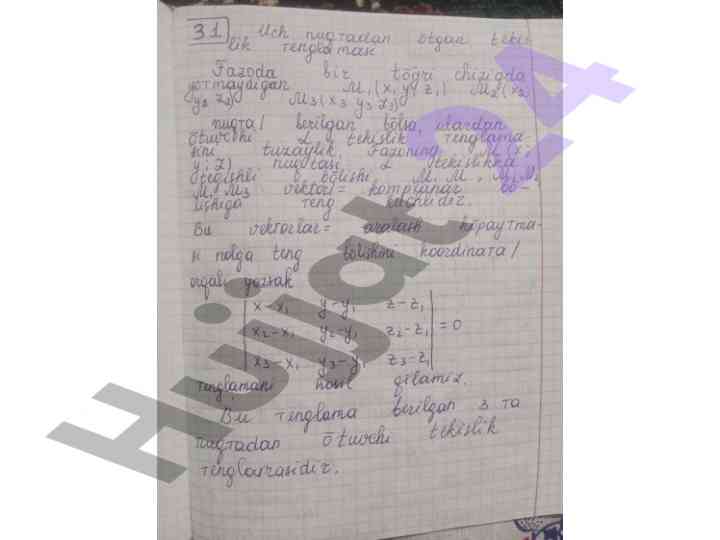 31 Uch nuqtadan ōtgan teki-
lik tenglamasi
Fazoda bir tōğri chiziqda
yotmaydigan M₁(x₁ y₁ z₁) M₂(x₂
y₂ z₂) M₃(x₃ y₃ z₃)
nuqta/ berilgan bōlsa, ulardan
ōtuvchi L tekislik tenglama-
sini tuzaylik. Fazoning M(x;
y; z) nuqtasi L tekislikka
tegishli bōlishi M₁M, M₁M₂
M₁M₃ vektor/= komplanar bō-
lishiga teng kuchlidir.
Bu vektorlar= aralash kōpaytma-
si nolga teng bōlishini koordinata/
orqali yozsak
| x-x₁ y-y₁ z-z₁ |
| x₂-x₁ y₂-y₁ z₂-z₁ | = 0
| x₃-x₁ y₃-y₁ z₃-z₁ |
tenglamani hosil qilamiz.
Bu tenglama berilgan 3 ta
nuqtadan ōtuvchi tekislik
tenglamasidir.
Hujjat 24